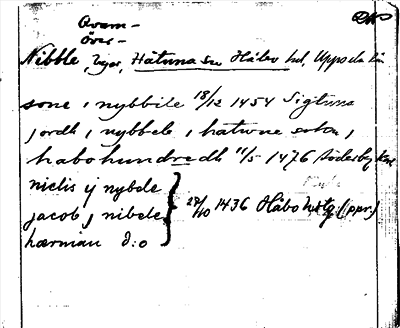 Qvarn -
Över -
Nibble byar, Håtuna sn Håbo hd, Uppsala län
sone i nybbile 18/12 1454 Sigtuna
jordh i nybbele i hatwne sokn i
habohundredh 11/5 1476 Söderby
niclis ij nybele
jacob j nibele 28/10 1436 Håbo hdtg (ppr)
hærman d:o